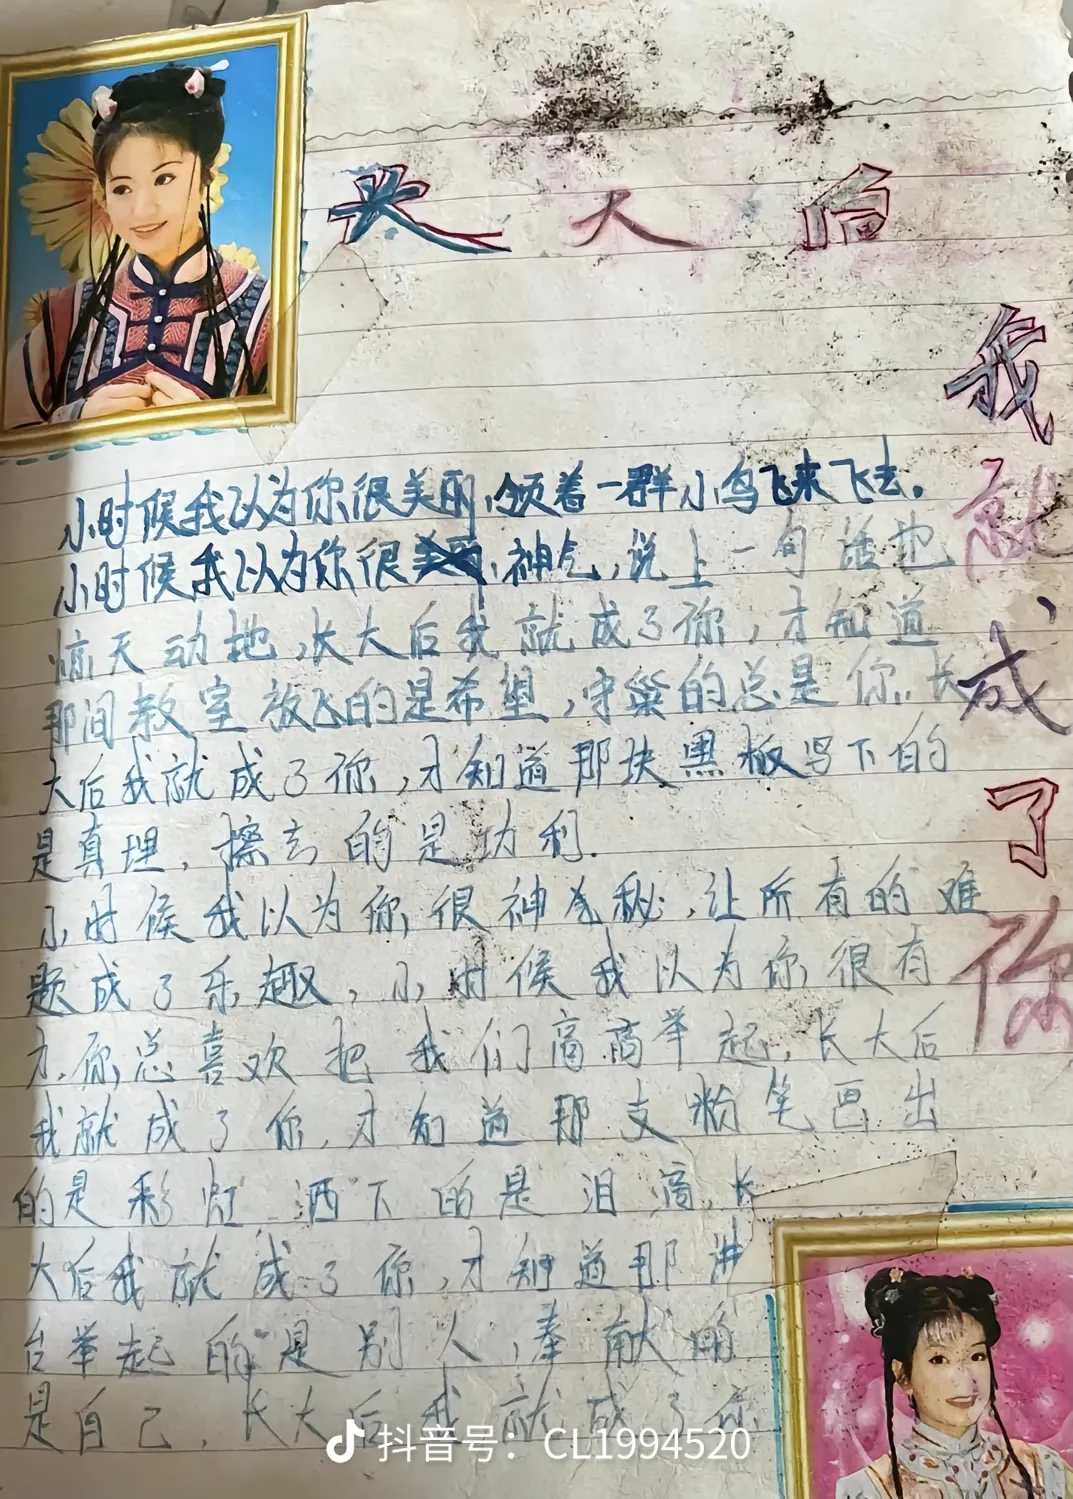 长大后
我就成了你
小时候我以为你很美丽,领着一群小鸟飞来飞去.
小时候我以为你很神气,说上一句话也
惊天动地,长大后我就成了你,才知道
那间教室放飞的是希望,守巢的总是你.长
大后我就成了你,才知道那块黑板写下的
是真理,擦去的是功利.
小时候我以为你很神秘,让所有的难
题成了乐趣,小时候我以为你很有
力,你总喜欢把我们高高举起,长大后
我就成了你,才知道那支粉笔画出
的是彩虹,洒下的是泪滴,长
大后我就成了你,才知道那讲
台举起的是别人,奉献的
是自己,长大后我就成了你
抖音号:CL1994520